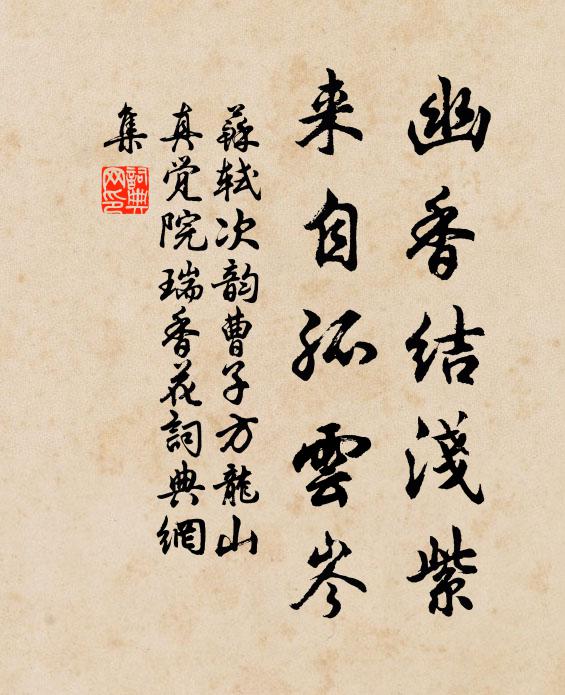 幽香结淺紫
来自孤雲岑
蘇軾次韵曹子方龍山
真觉院瑞香花詞典網
集
詞典
网印